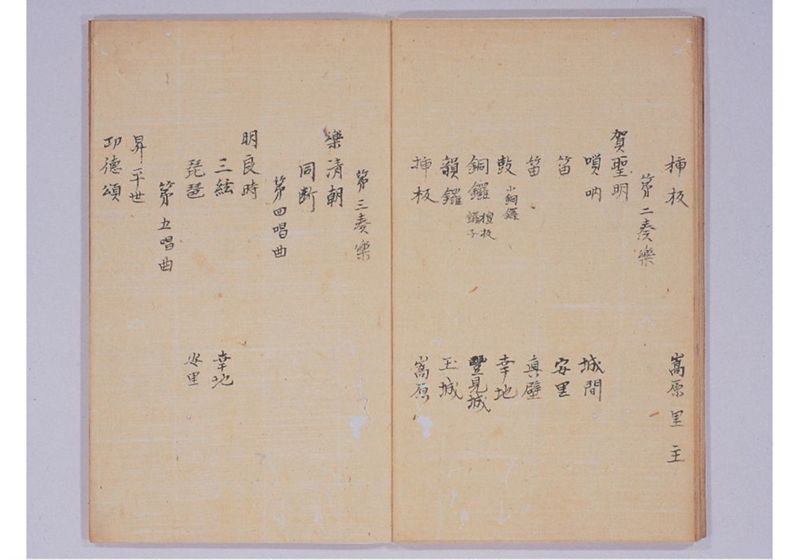 挿板 嵩原里主
第二奏樂
賀聖明
嗩吶 城間
笛 安里
笛 真壁
鼓 小銅鑼 幸地
銅鑼 檀板 鑼子 豐見城
韻鑼 玉城
挿板 嵩原
第三奏樂
樂清朝
同断
第四唱曲
明良時
三絃 幸地
琵琶 安里
第五唱曲
昇平世
功德頌